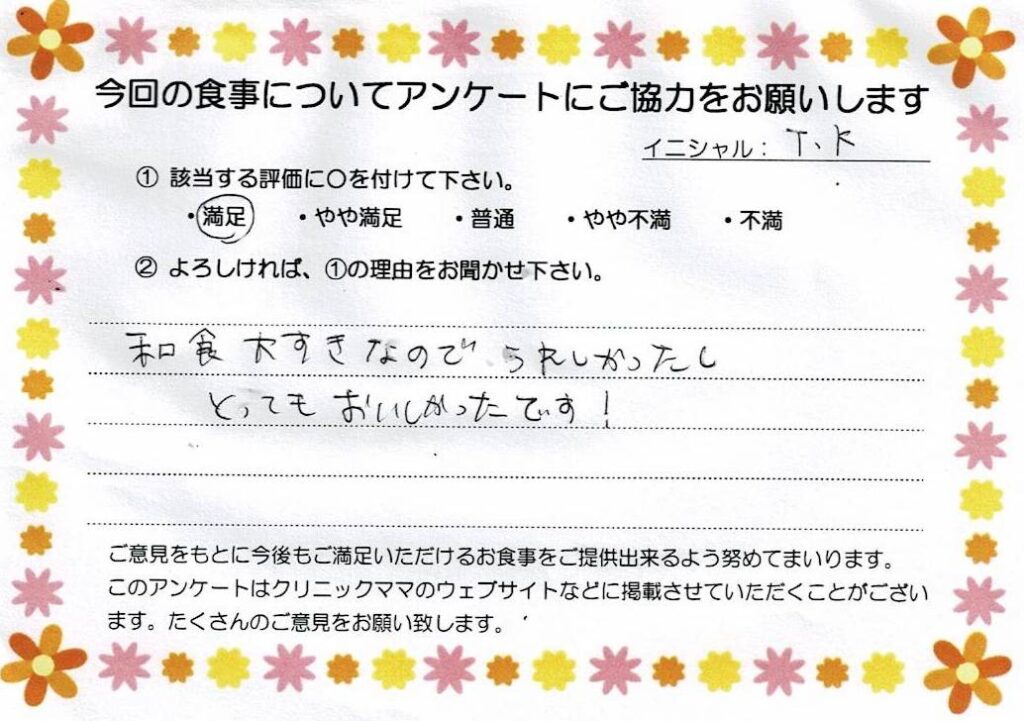 今回の食事についてアンケートにご協力をお願いします
イニシャル： T、K
① 該当する評価に〇を付けて下さい。
・満足 ・やや満足 ・普通 ・やや不満 ・不満
② よろしければ、①の理由をお聞かせ下さい。
和食 大すきなので、うれしかったし
とっても おいしかったです！
ご意見をもとに今後もご満足いただけるお食事をご提供出来るよう努めてまいります。
このアンケートはクリニックママのウェブサイトなどに掲載させていただくことがござい
ます。たくさんのご意見をお願い致します。